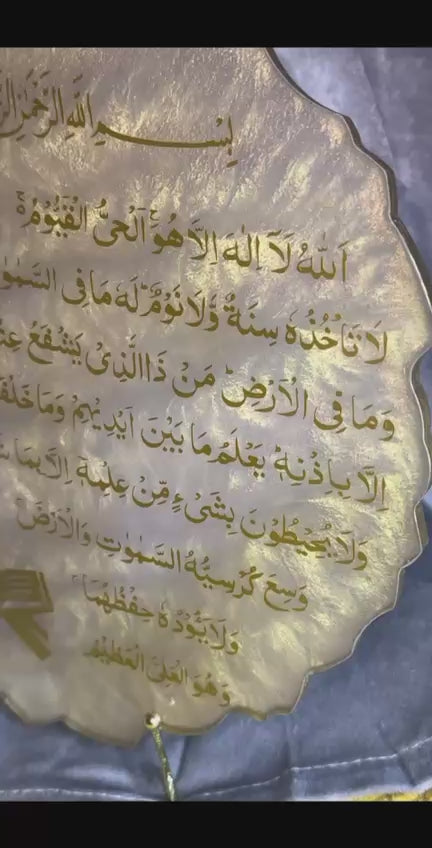 بِسْمِ اللّٰهِ الرَّحْمٰنِ
اَللّٰهُ لَاۤ اِلٰهَ اِلَّا هُوَۚ اَلْحَیُّ الْقَیُّوْمُ
لَا تَاْخُذُهٗ سِنَةٌ وَّلَا نَوْمٌؕ لَهٗ مَا فِی
وَمَا فِی الْاَرْضِؕ مَنْ ذَا الَّذِیْ یَشْفَعُ
اِلَّا بِاِذْنِهٖ یَعْلَمُ مَا بَیْنَ اَیْدِیْهِمْ وَمَا
وَلَا یُحِیْطُوْنَ بِشَیْءٍ مِّنْ عِلْمِهٖۤ اِلَّا بِمَا
وَسِعَ كُرْسِیُّهُ السَّمٰوٰتِ وَالْاَرْضَ
وَلَا یَئُوْدُهٗ حِفْظُهُمَا
وَهُوَ الْعَلِیُّ الْعَظِیْمُ